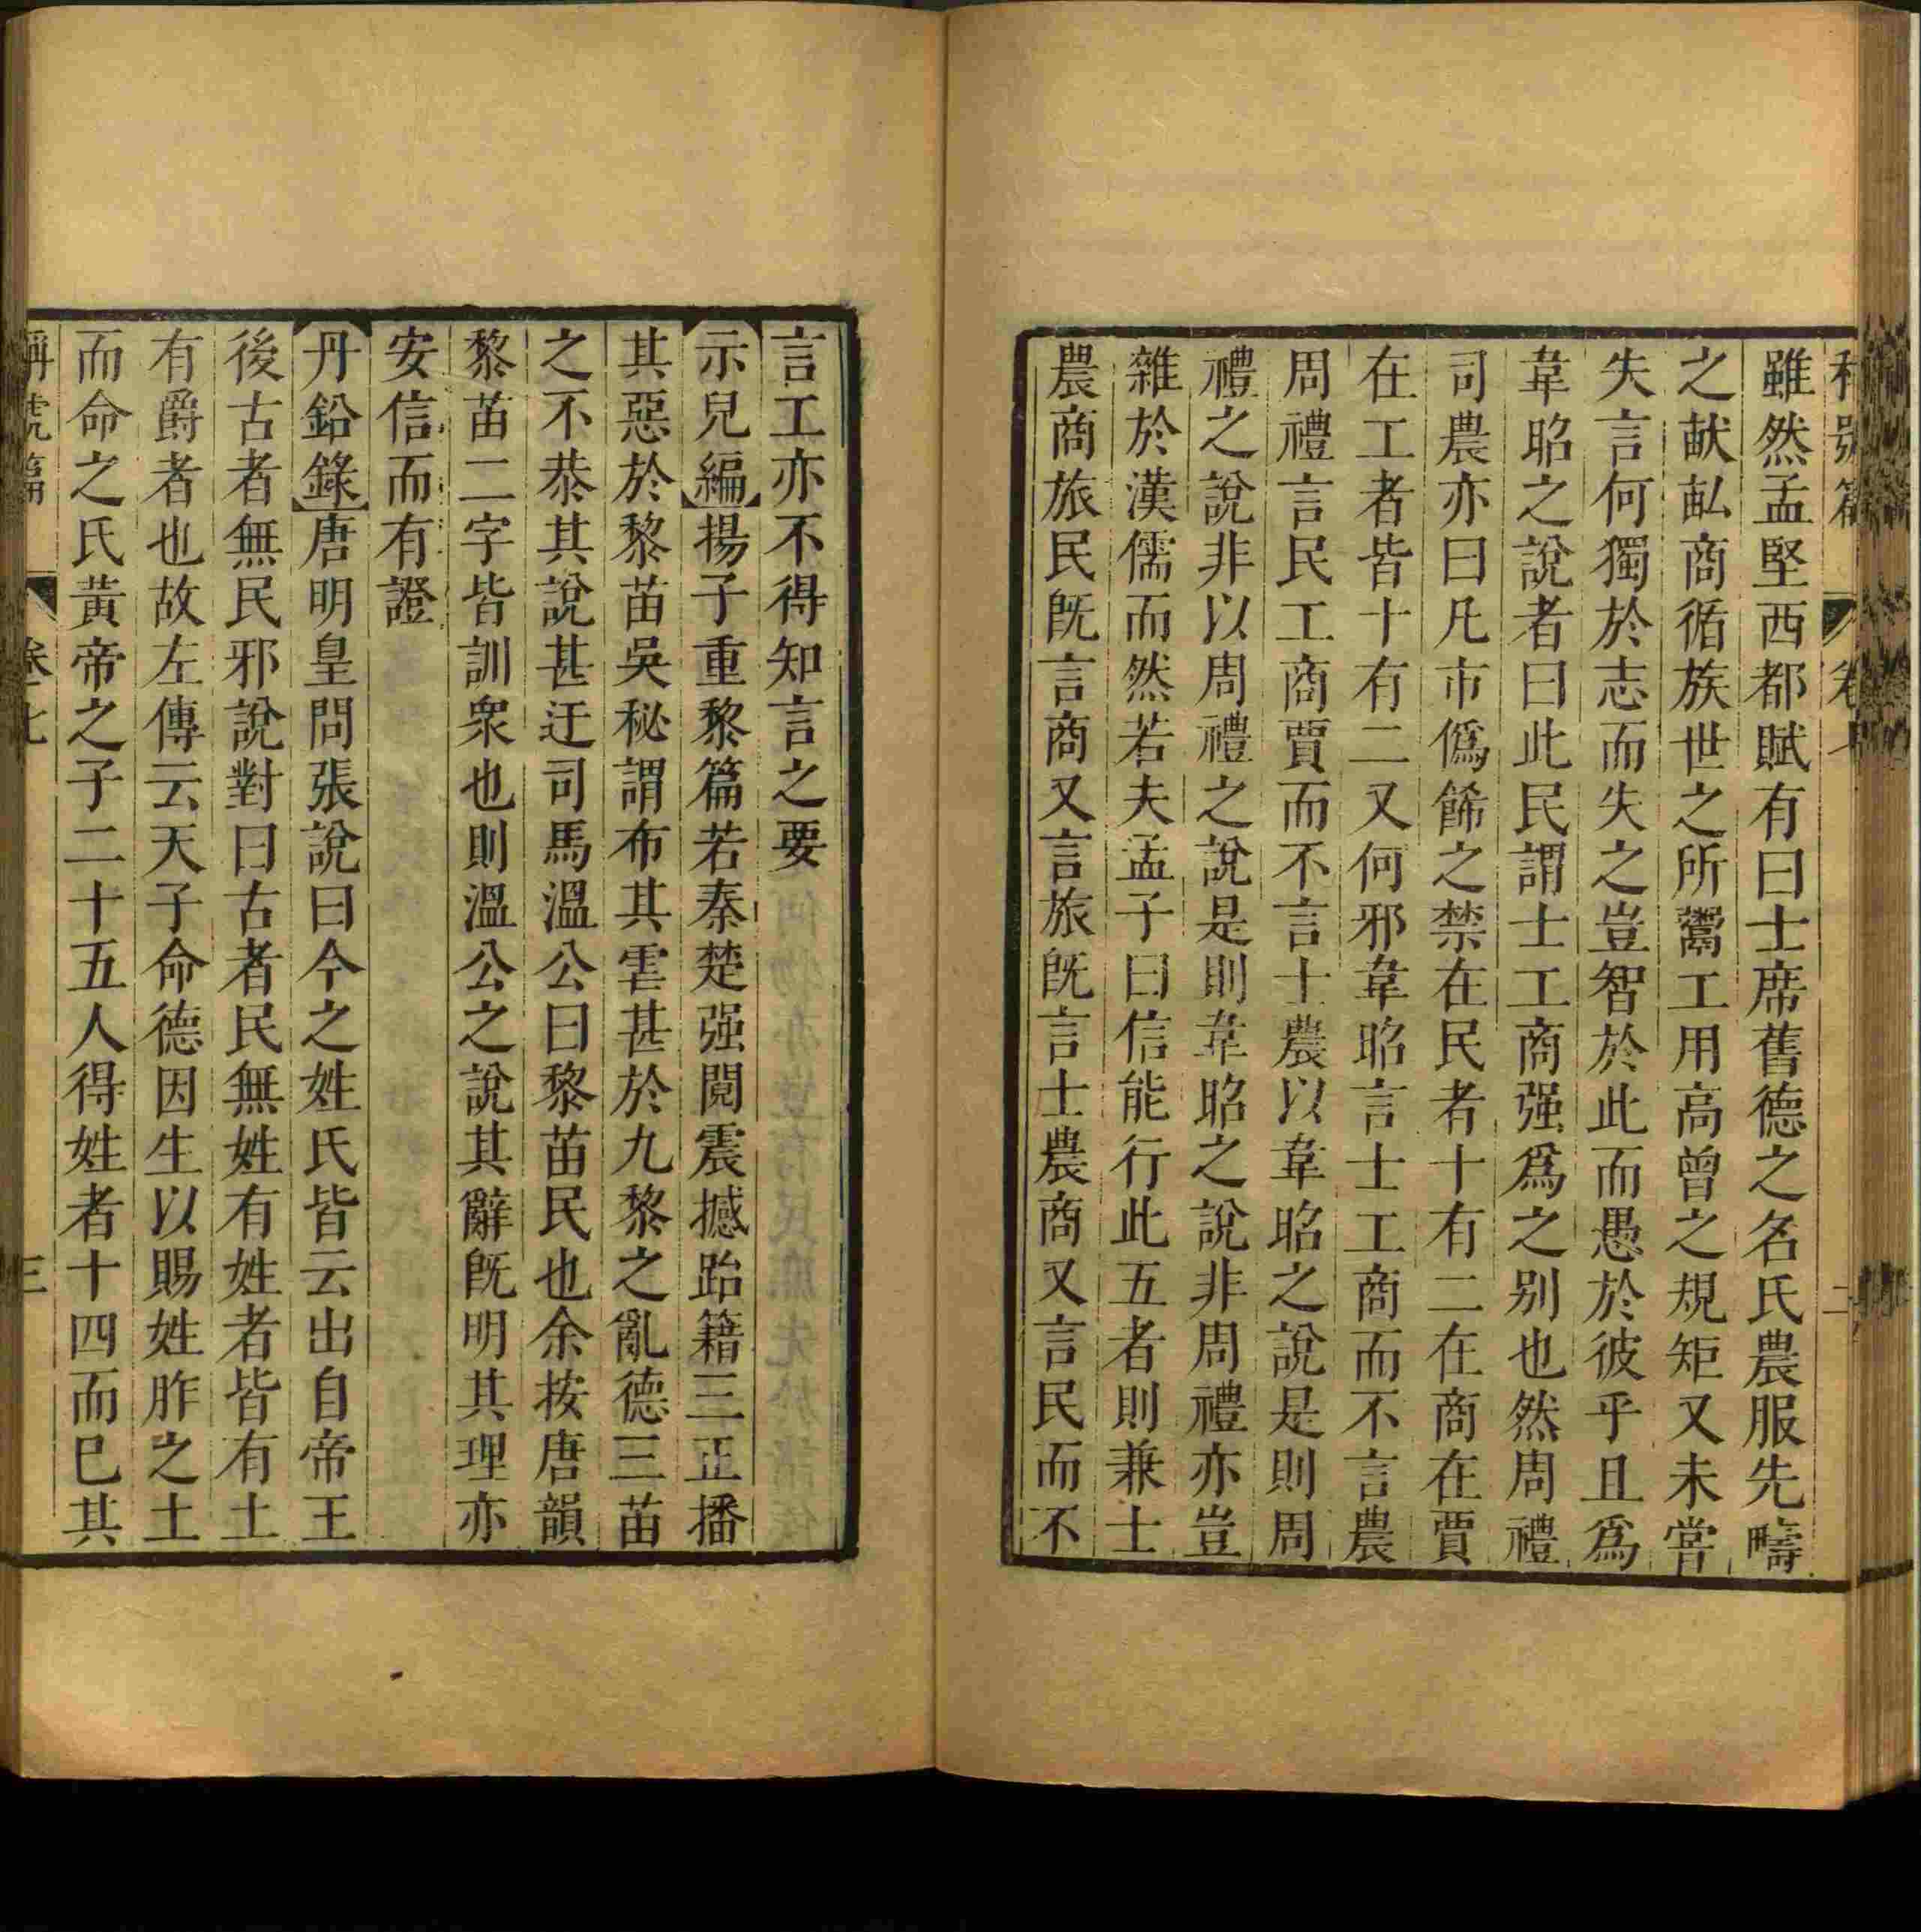 雖然孟堅西都賦有曰士席舊德之名氏農服先疇
之畎畝商循族世之所鬻工用高曾之規矩又未嘗
失言何獨於志而失之豈智於此而愚於彼乎且為
韋昭之說者曰此民謂士工商强爲之别也然周禮
司農亦曰凡市僞飾之禁在民者十有二在商在賈
在工者皆十有二又何邪韋昭言士工商而不言農
周禮言民工商賈而不言士農以韋昭之說是則周
禮之說非以周禮之說是則韋昭之說非周禮亦豈
雜於漢儒而然若夫孟子曰信能行此五者則兼士
農商旅民旣言商又言旅旣言士農商又言民而不
言工亦不得知言之要
示兒編揚子重黎篇若秦楚强閱震撼跆籍三正播
其惡於黎苗吳秘謂布其虐甚於九黎之亂德三苗
之不恭其說甚迂司馬溫公曰黎苗民也余按唐韻
黎苗二字皆訓衆也則溫公之說其辭旣明其理亦
安信而有證
丹鉛錄唐明皇問張說曰今之姓氏皆云出自帝王
後古者無民邪說對曰古者民無姓有姓者皆有土
有爵者也故左傳云天子命德因生以賜姓胙之土
而命之氏黃帝之子二十五人得姓者十四而巳其
稱號篇 卷七 三